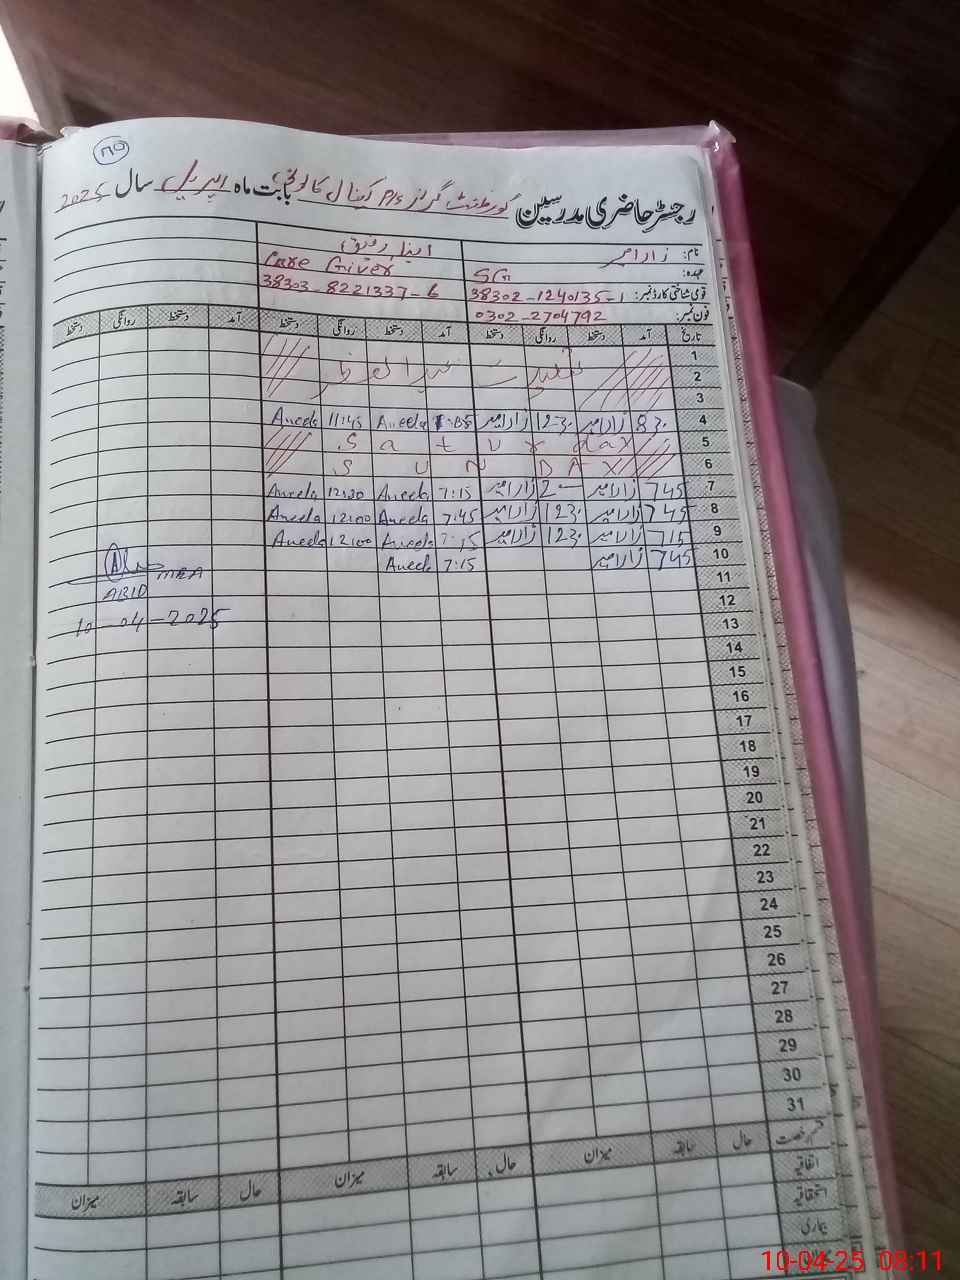 رجسٹر حاضری مدرسین گورنمنٹ گرلز P/S کینال کالونی بابت ماہ اپریل سال 2025
نام: زارا امیر
عہدہ: SG Care Giver
قومی شناختی کارڈ نمبر: 38302-1240135-1 38303-8221337-6
فون نمبر: 0302-2704792
تاریخ آمد دستخط روانگی دستخط آمد دستخط روانگی دستخط آمد دستخط روانگی دستخط
1
2 عید الفطر
3
4 8 3. زارا امیر 12-3. زارا امیر Aneela 11:45 Aneela
5 Saturday
6 SUNDAY
7 745 زارا امیر 2 زارا امیر 7:15 Aneela 12:30 Aneela
8 745 زارا امیر 123. زارا امیر 7:45 Aneela 12:00 Aneela
9 715 زارا امیر 123. زارا امیر 7:15 Aneela 12:00 Aneela
10 745 زارا امیر 7:15 Aneela
MEA
ABID
10-04-2025
11
12
13
14
15
16
17
18
19
20
21
22
23
24
25
26
27
28
29
30
31
قسم رخصت حال سابقہ میزان حال سابقہ میزان حال سابقہ میزان
اتفاقیہ
استحقاقیہ
بیماری
10-04-25 08:11